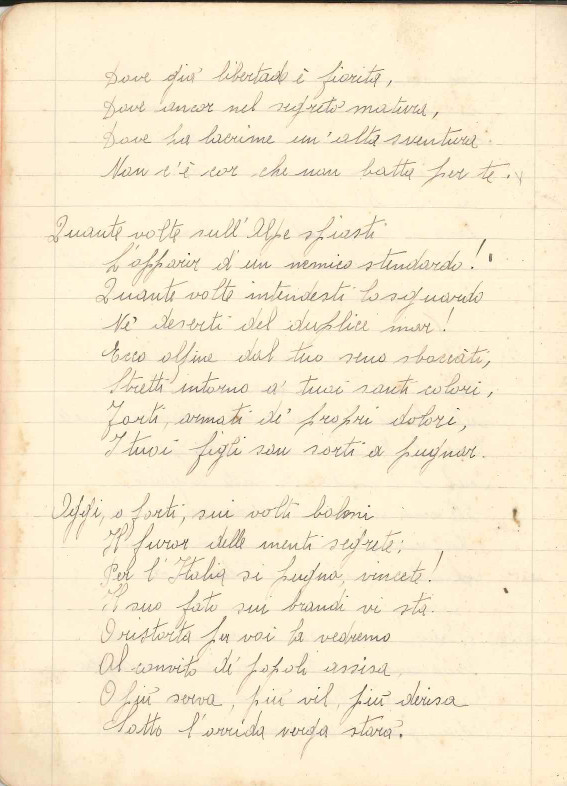 Dove già libertade è fiorita,
Dove ancor nel segreto matura,
Dove ha lacrime un'alta sventura
Non c'è cor che non batta per te.
Quante volte sull'Alpe spiasti
L'apparir d'un nemico stendardo!
Quante volte intendesti lo sguardo
Ne' deserti del duplice mar!
Ecco alfine dal tuo seno sbocciati,
Stretti intorno a' tuoi santi colori,
Forti, armati de' propri dolori,
I tuoi figli son sorti a pugnar.
Oggi, o forti, sui volti baleni
Il furor delle menti segrete:
Per l'Italia si pugna, vincete!
Il suo fato sui brandi vi sta.
O risorta per voi la vedremo
Al convito de' popoli assisa
O più serva, più vil, più derisa
Sotto l'orrida verga starà.